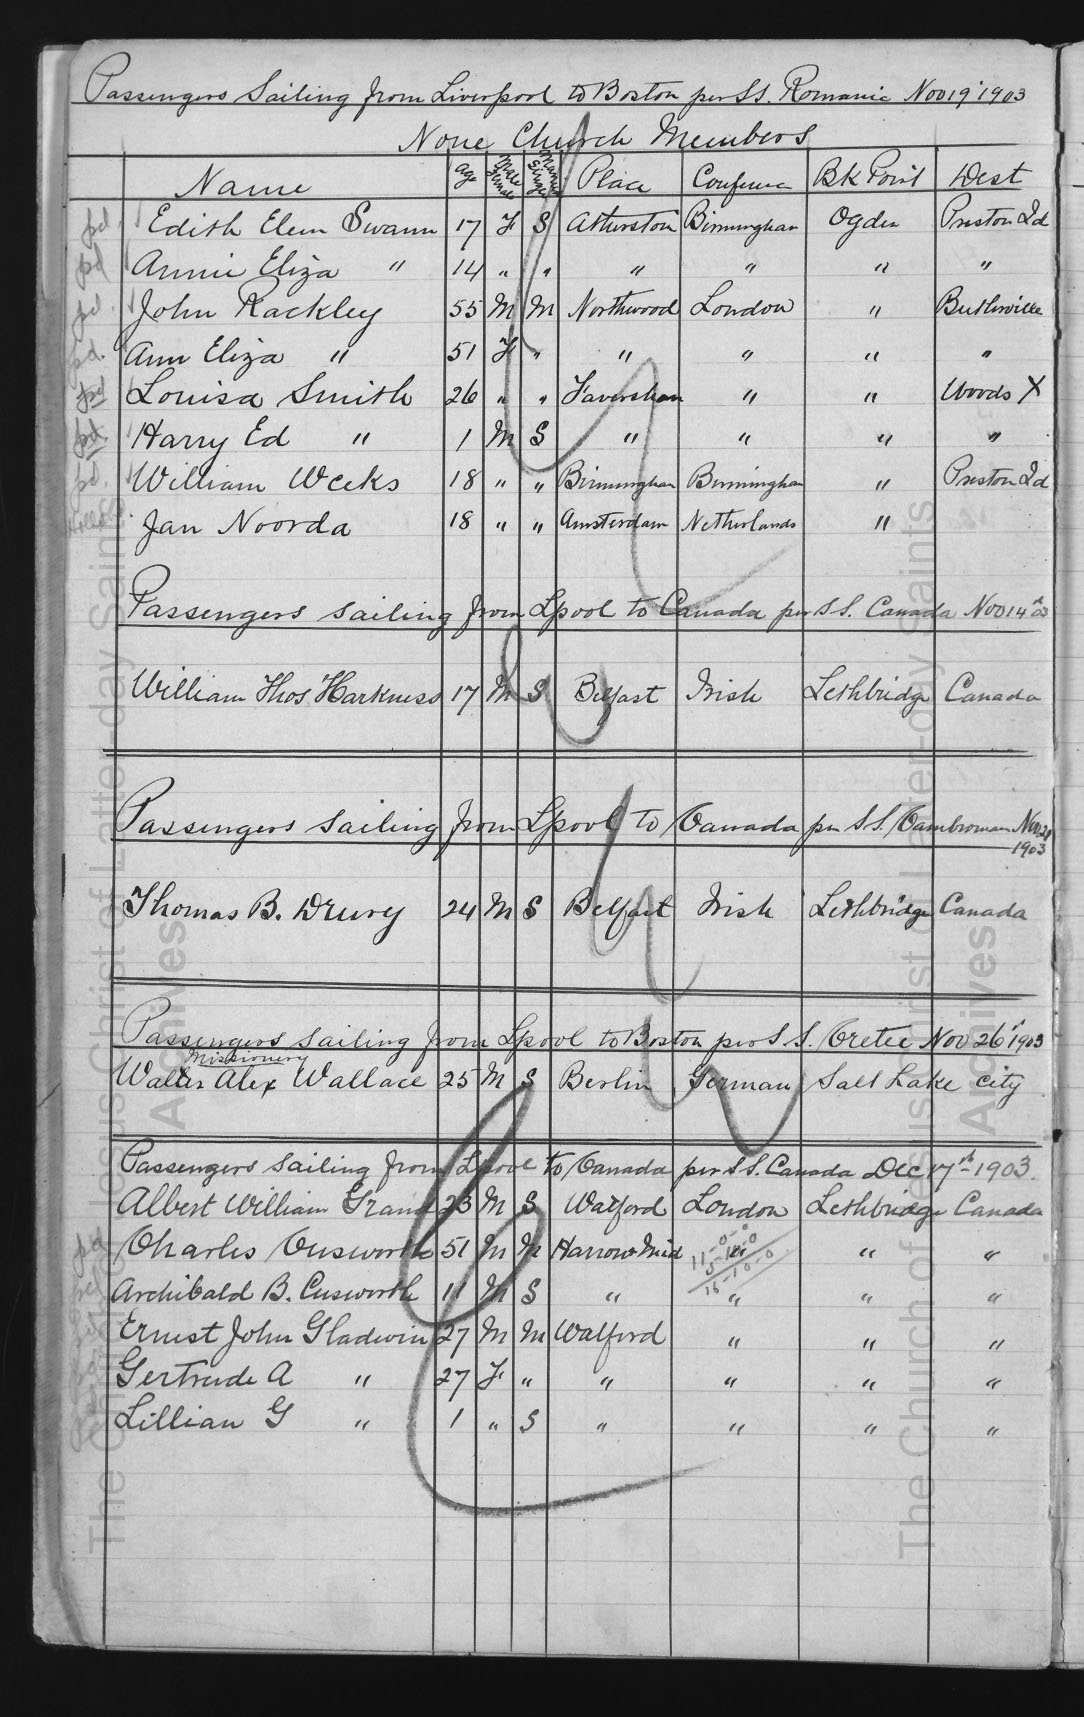 Passengers Sailing from Liverpool to Boston per S.S. Romanic Nov 19 1903
None Church Members
Name Age Male Female Married Single Place Conference Bk Point Dest
pd Edith Elen Swann 17 F S Atherston Birmingham Ogden Preston Id
pd Annie Eliza " 14 " " " " " "
pd John Rackley 55 M M Northwood London " Butlerville
pd. Ann Eliza " 51 F " " " " "
pd Louisa Smith 26 " " Faversham " " Woods X
pd Harry Ed " 1 M S " " " "
pd. William Weeks 18 " " Birmingham Birmingham " Preston Id
Jan Noorda 18 " " Amsterdam Netherlands "
Passengers sailing from Lpool to Canada per S.S. Canada Nov 14th 03
William Thos Harkness 17 M S Belfast Irish Lethbridge Canada
Passengers sailing from Lpool to Canada per S.S. Cambroman Nov 21
1903
Thomas B. Drury 24 M S Belfast Irish Lethbridge Canada
Passengers sailing from Lpool to Boston per S.S. Cretic Nov 26th 1903
Missionery
Walter Alex Wallace 25 M S Berlin German Salt Lake City
Passengers sailing from Lpool to Canada per S.S. Canada Dec 17th 1903.
Albert William Grand 23 M S Watford London Lethbridge Canada
pd Charles Cusworth 51 M M Harrow Mid " " "
11-0-0
16-10-0
Archibald B. Cusworth 11 M S " " " "
Ernest John Gladwin 27 M M Watford " " "
Gertrude A " 27 F " " " " "
Lillian G " 1 " S " " " "
The Church of Jesus Christ of Latter-day Saints
Archives
The Church of Jesus Christ of Latter-day Saints
Archives